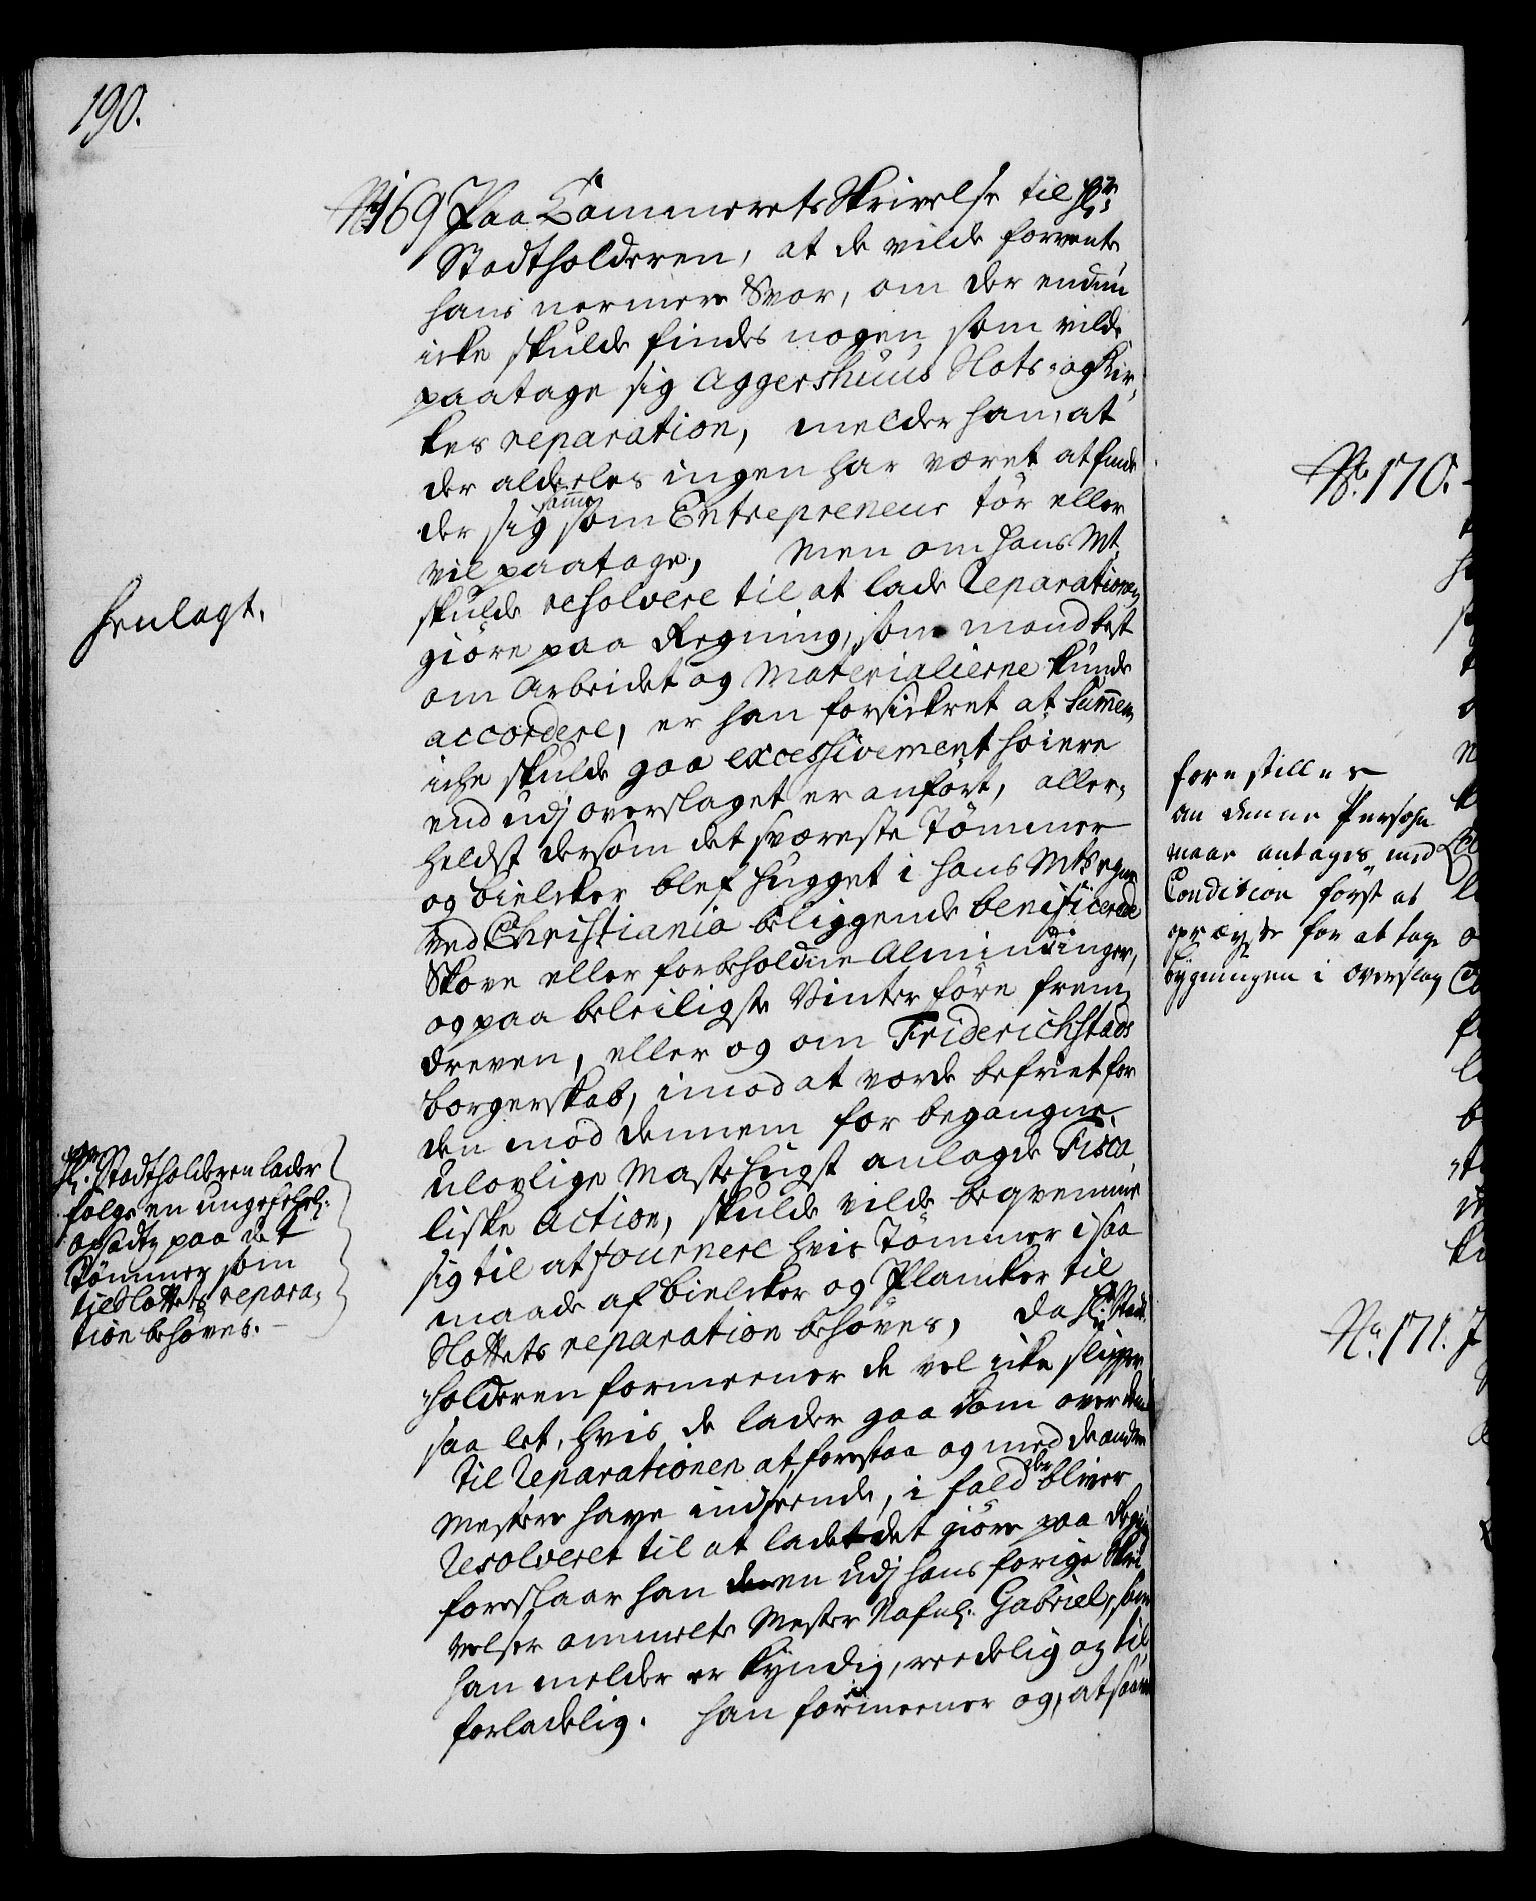 190.
No. 169 Paa Cammerets Skrivelse til Hr.
Stadtholderen, at de vilde forvente
hans nermere Svar, om der endnu
icke skulde findes nogen som vilde
paatage sig Aggershuus Slots- og Kir-
kes reparation, melder han, at
der alldeeles ingen har været at finde
der sig samme som Entrepreneur tör eller
vil paatage, Men om Hans Mt.
skulde resolvere til at lade Reparationen
giöre paa Regning, som mand best
om Arbeidet og Materialierne kunde
accordere, er han forsickret at Summen
icke skulde gaa excessivement höiere
end udj overslaget er anfört, aller-
heldst dersom det sværeste Tömmer
og bielcker blef hugget i Hans Mts egne
ved Christiania beliggende beneficerede
Skove eller forbeholdne Almindinger,
og paa beleiligste Vinterföre frem-
dreven, eller og om Friderichstads
borgerskab, imod at vorde befriet for
den mod dennem for begangne
ulovlige Mastehugst anlagde Fisca-
liske Action, skulde vilde beqvemme
sig til at fournere hvis Tömmer i saa
maade af bielcker og Plancker til
Slottets reparation behöves, da Hr. Stadt-
holderen formeener de vel icke slipper
saa let, hvis de lader gaa Dom over dem
Til Reparationen at forestaa og med de andre
Mestere have indseende, i fald der bliver
Resolveret til at lade det giöre paa Regning
foreslaar han en udj hans forige Skri-
velser ommelte Mester Nafnl. Gabriel, som
han melder er kyndig, reedelig og til
forladelig. Han formeener og, at saadan
Henlagt.
Hr. Stadtholderen lader
fölge en ungefehrl.
opsadtz paa det
Tömmer som
til Slottets repara-
tion behöves.
No. 170.
forestilles
an denne Persohn
maae antages med
Condition först at
opreyse for at tage
bygningen i overslag
No. 171.